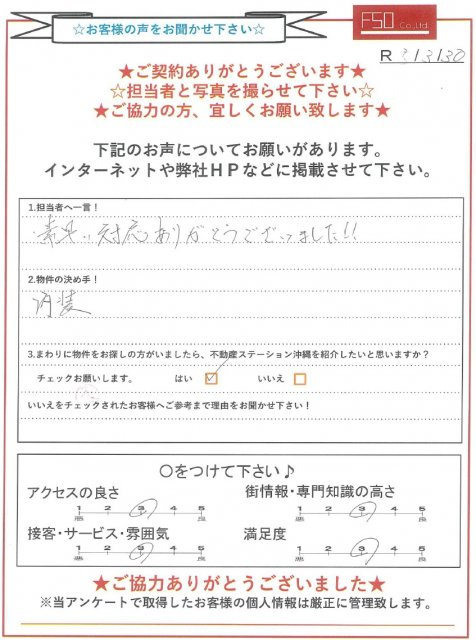 ☆お客様の声をお聞かせ下さい☆
FSO
Co.,Ltd.
R 3/3/30
★ご契約ありがとうございます★
☆担当者と写真を撮らせて下さい☆
★ご協力の方、宜しくお願い致します★
下記のお声についてお願いがあります。
インターネットや弊社HPなどに掲載させて下さい。
1.担当者へ一言！
素早い対応ありがとうございました!!
2.物件の決め手！
内装
3.まわりに物件をお探しの方がいましたら、不動産ステーション沖縄を紹介したいと思いますか？
チェックお願いします。 はい ☑ いいえ □
いいえをチェックされたお客様へご参考まで理由をお聞かせ下さい！
〇をつけて下さい♪
アクセスの良さ
1 2 3 4 5
悪 良
街情報・専門知識の高さ
1 2 3 4 5
悪 良
接客・サービス・雰囲気
1 2 3 4 5
悪 良
満足度
1 2 3 4 5
悪 良
★ご協力ありがとうございました★
※当アンケートで取得したお客様の個人情報は厳正に管理致します。